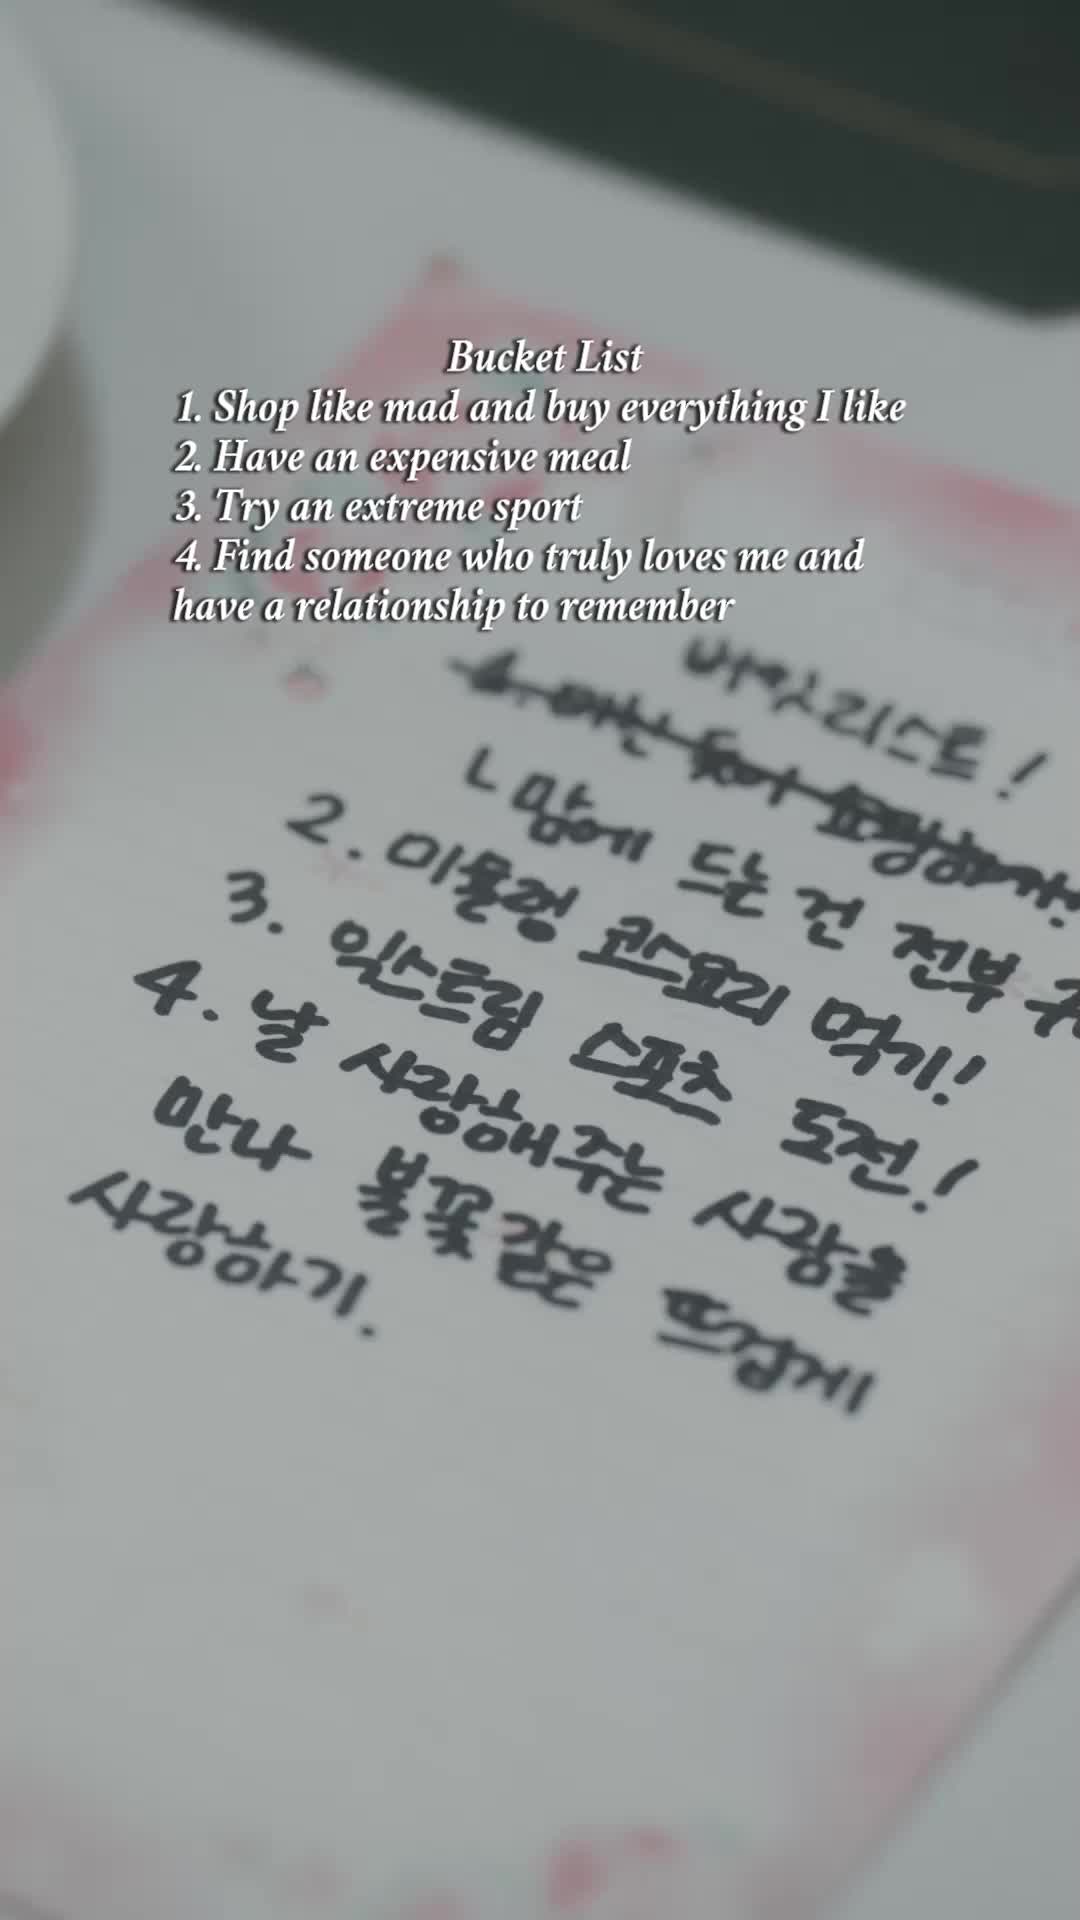 Bucket List
1. Shop like mad and buy everything I like
2. Have an expensive meal
3. Try an extreme sport
4. Find someone who truly loves me and
have a relationship to remember
버킷리스트!
1. 미친 듯이 쇼핑하기!
ㄴ 맘에 드는 건 전부
2. 미슐랭 코스요리 먹기!
3. 익스트림 스포츠 도전!
4. 날 사랑해주는 사람을
만나 불꽃같은 뜨겁게
사랑하기.